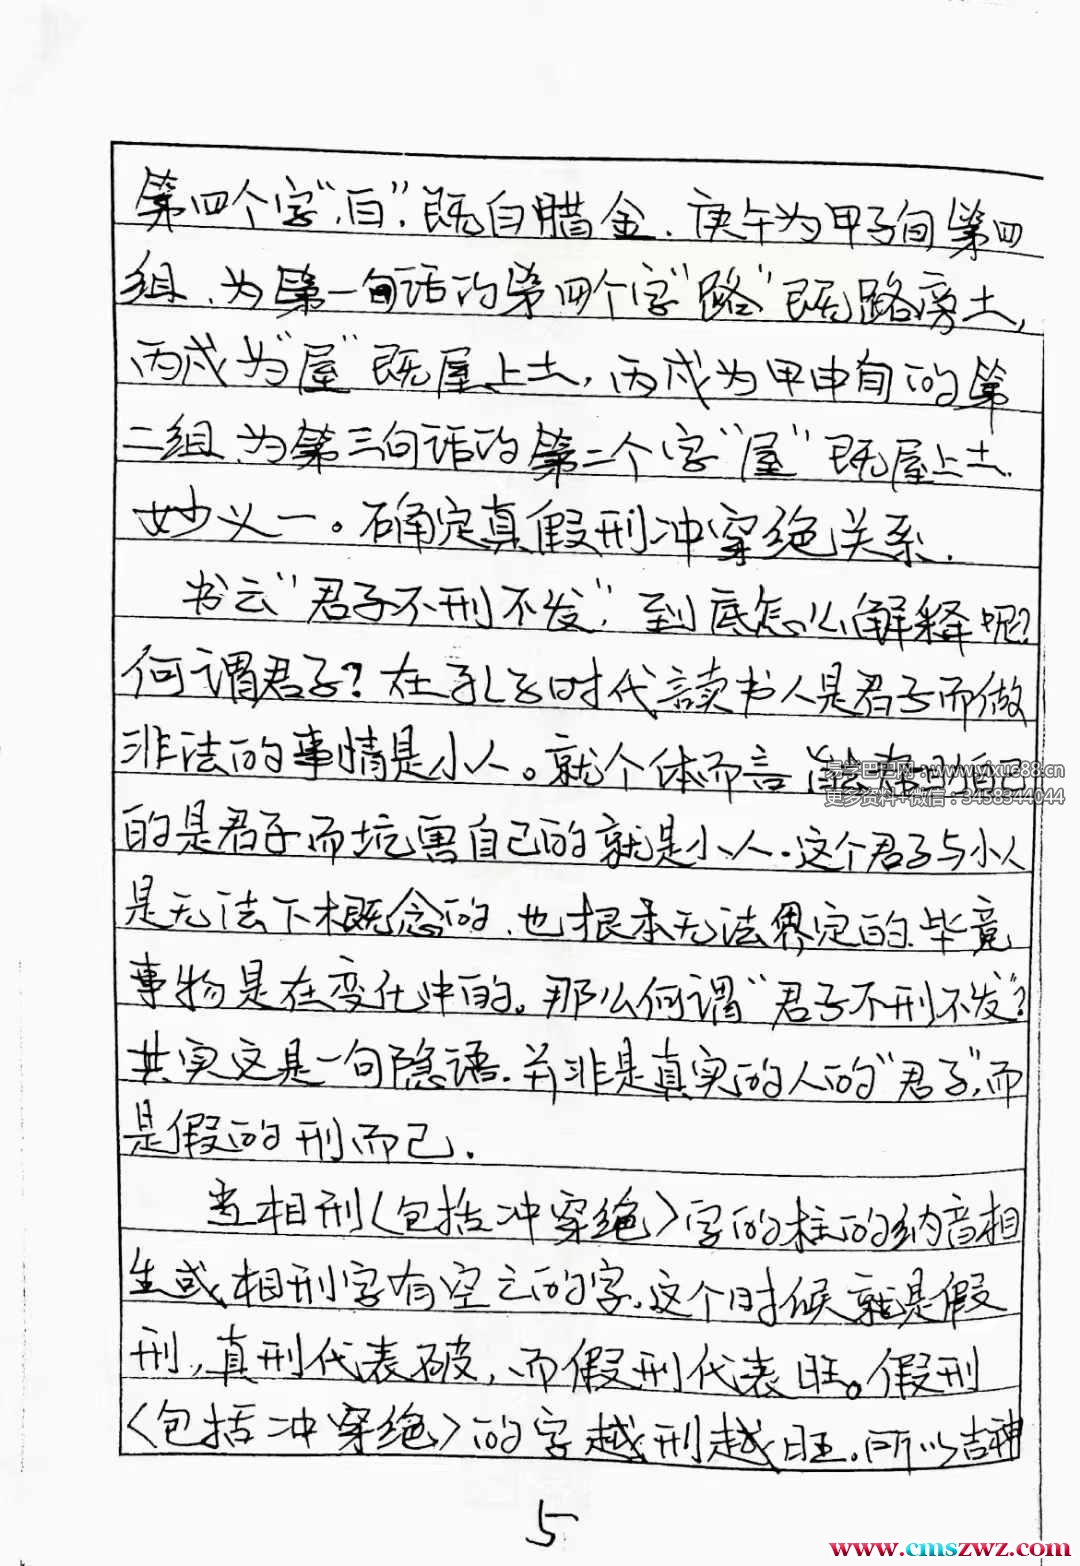 第四个字“白”,既白腊金.庚午为甲子旬第四
组、为第一句话的第四个字“路”既路旁土,
丙戌为“屋”既屋上土,丙戌为甲申旬的第
二组、为第三句话的第二个字“屋”既屋上土.
妙义一。确定真假刑冲穿绝关系.
书云“君子不刑不发”,到底怎么解释呢?
何谓君子?在孔子时代读书人是君子而做
非法的事情是小人。就个体而言 自己
的是君子而坑害自己的就是小人.这个君子与小人
是无法下概念的、也根本无法界定的.毕竟
事物是在变化中的。那么何谓“君子不刑不发”?
其实这是一句隐语.并非是真实的人的“君子”,而
是假的刑而已.
当相刑〈包括冲穿绝〉字的柱的纳音相
生或相刑字有空亡的字,这个时候就是假
刑,真刑代表破,而假刑代表旺。假刑
〈包括冲穿绝〉的字越刑越旺.所以吉神
5
易学巴巴网:www.yixue88.cn
更多资料+微信:3458344044
www.cmszwz.com